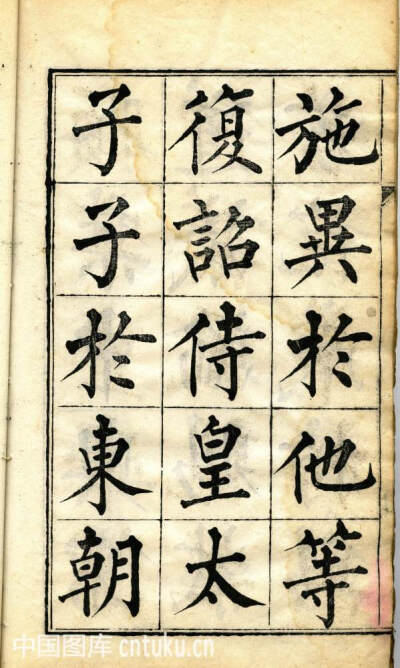 施異於他等
復詔侍皇太
子子於東朝
中国图库 cntuku.cn